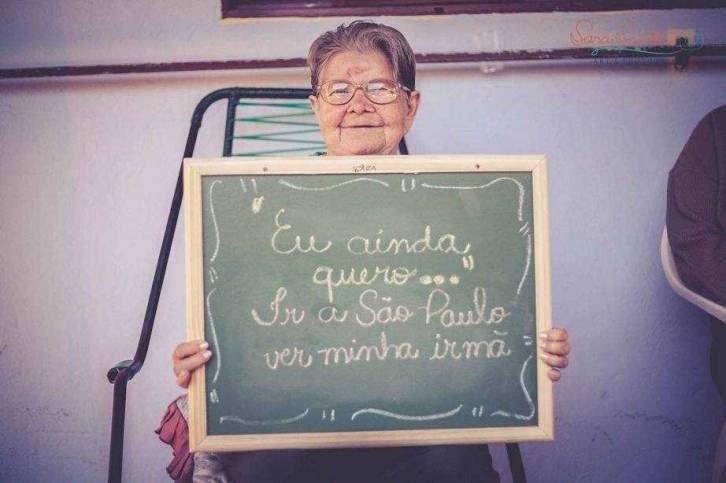 "Eu ainda
quero..."
Ir a São Paulo
ver minha irmã